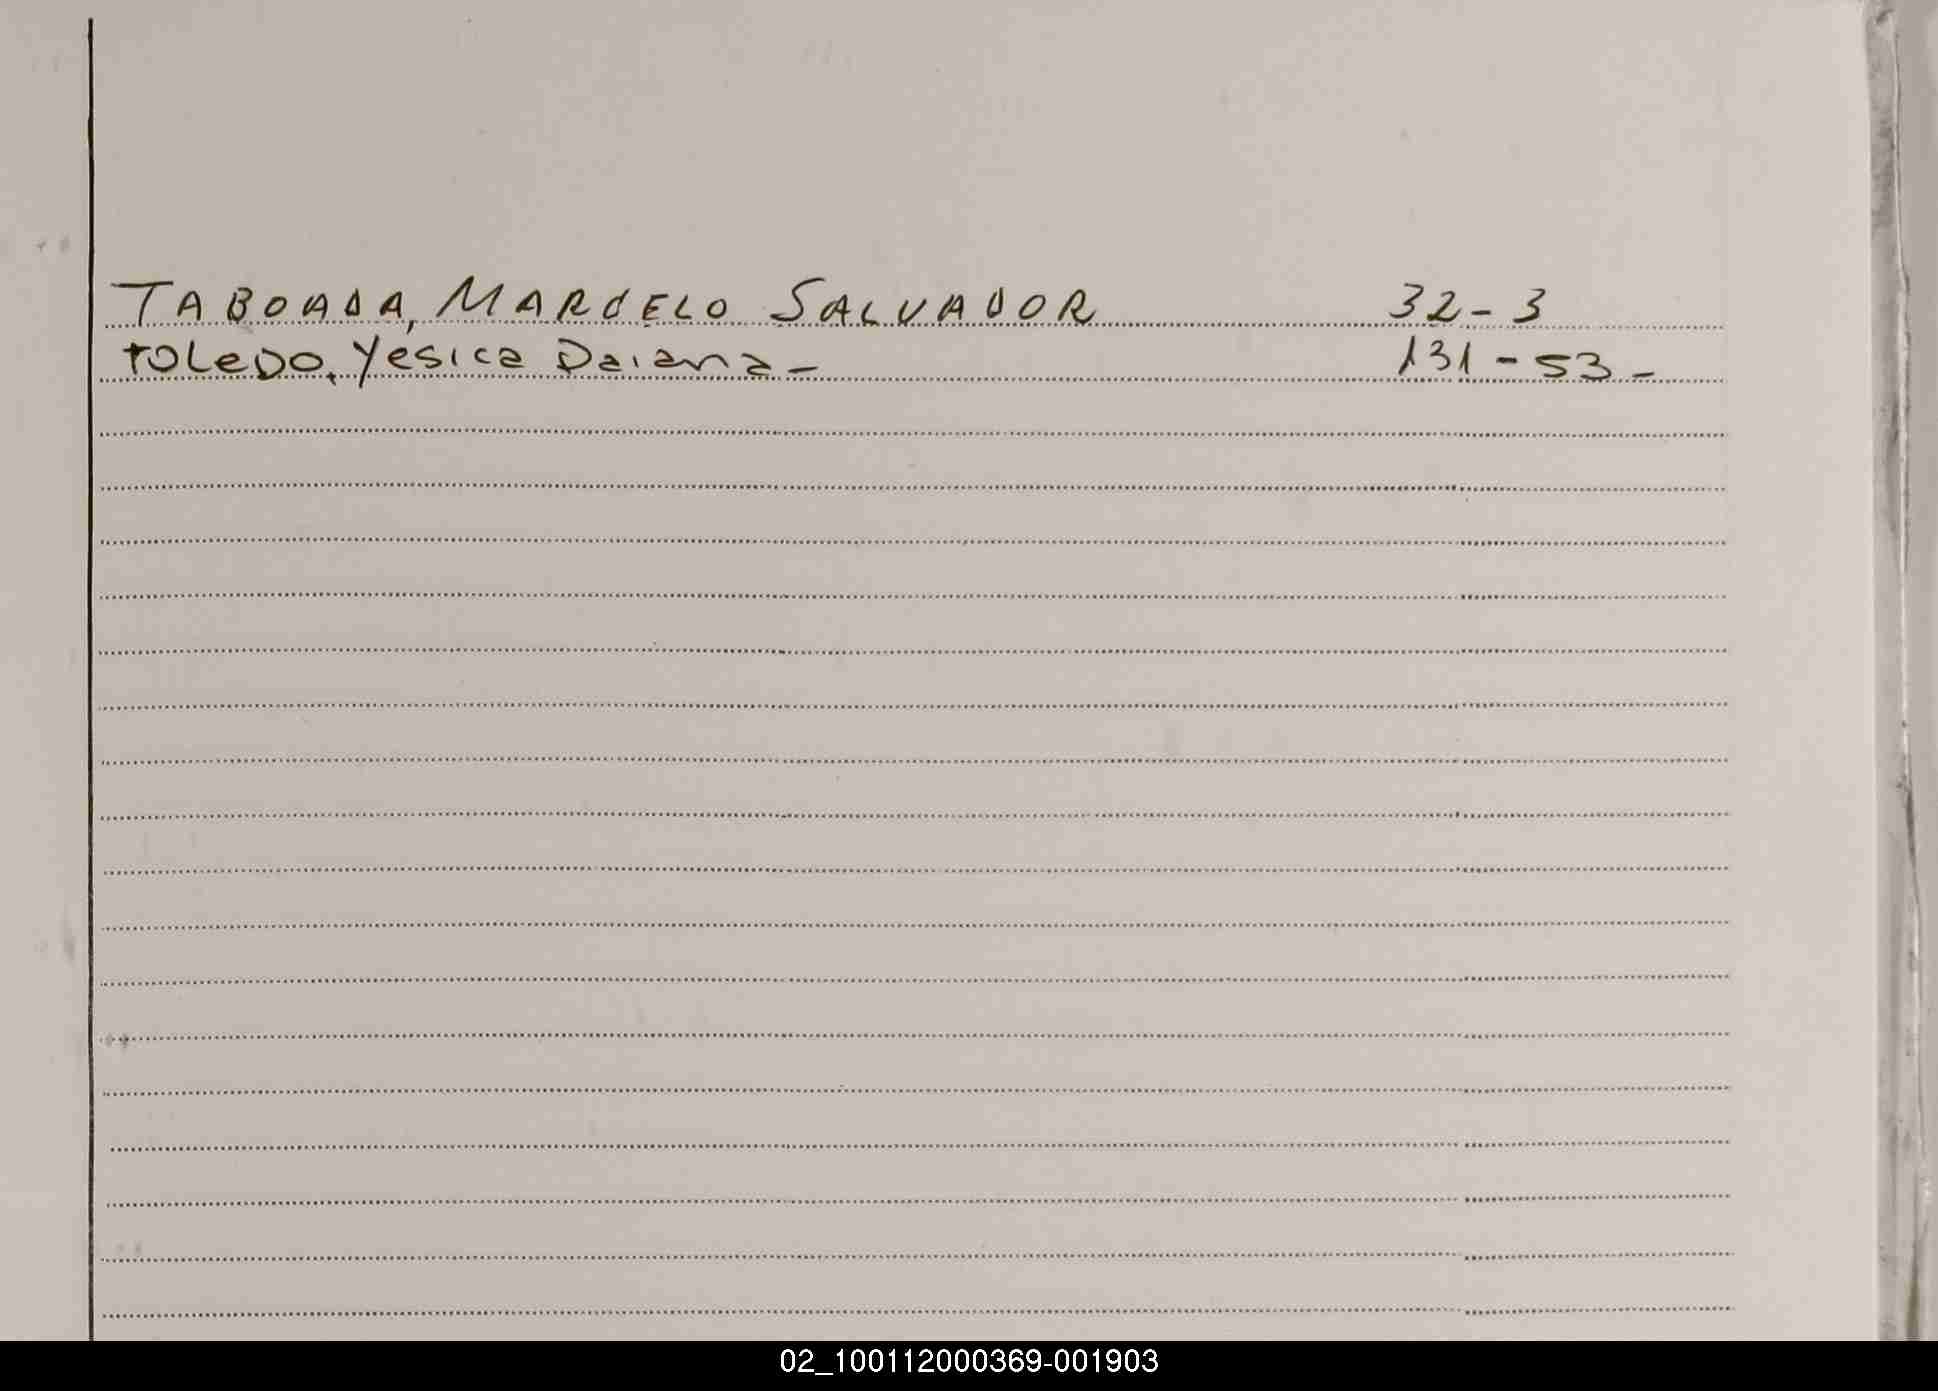 TABOADA, MARCELO SALVADOR 32-3
TOLEDO, Yesica Daiana - 131-53-
02_100112000369-001903